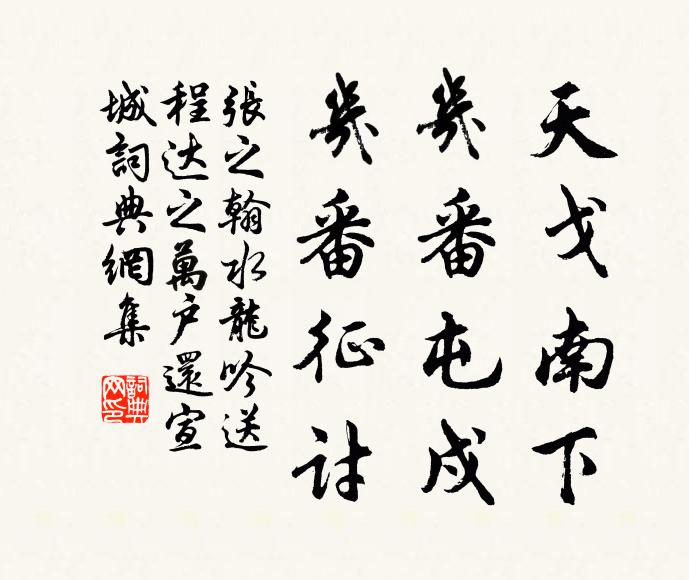 天戈南下
幾番屯戍
幾番征討
張之翰水龍吟送
程达之萬户還宣
城詞典網集
詞典网印